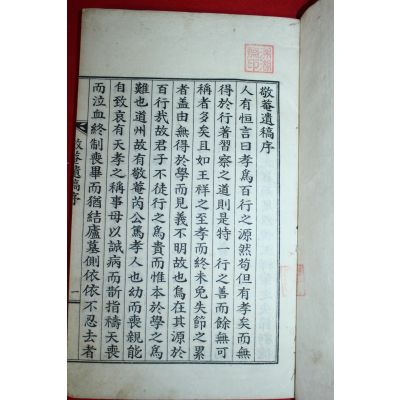 敬菴遺稿序
人有恒言曰孝爲百行之源然苟但有孝矣而無
得於行著習察之道則是特一行之善而餘無可
稱者多矣且如王祥之至孝而終未免失節之累
者蓋由無得於學而見義不明故也烏在其源於
百行哉故君子不徒行之爲貴而惟本於學之爲
難也道州故有敬菴芮公篤孝人也幼而喪親能
自致哀有天孝之稱事母以誠病而斮指禱天喪
而泣血終制喪畢而猶結廬墓側依依不忍去者
敬菴遺稿序
一